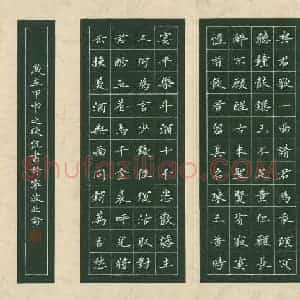 與君歌一曲請君為我傾耳
聽鐘鼓饌玉不足貴但願長
醉不願醒古來聖賢皆寂寞
惟有飲者留其名陳王昔時
宴平樂斗酒十千恣歡謔主
人何為言少錢徑須沽取對
君酌五花馬千金裘呼兒將
出換美酒與爾同銷萬古愁
歲在甲申之秋書於寧波
Shufaziliao.com